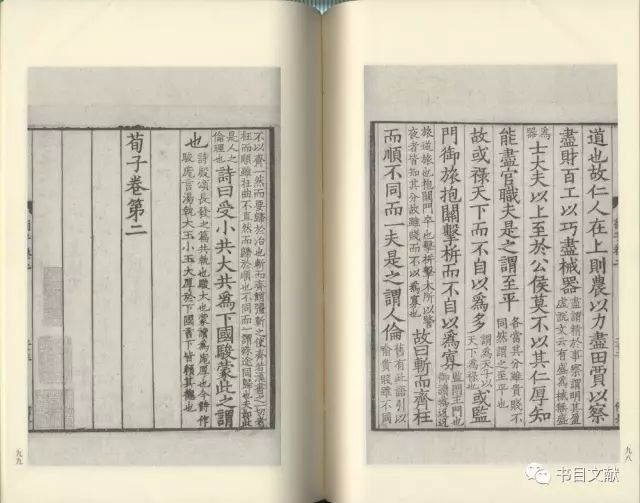 道也故仁人在上則農以力盡田賈以察
盡財百工以巧盡械器盡謂精於事察謂明其盈虛說文云有盛爲械無盛
爲器士大夫以上至於公侯莫不以其仁厚知
能盡官職夫是之謂至平各當其分雖貴賤不同然謂之至平也
故或祿天下而不自以爲多謂爲天子以天下爲祿也或監
門御旅抱關擊柝而不自以爲寡監門主門也御讀爲迓迓
旅逆旅也抱關門卒也擊柝擊木所以警夜者皆知其分故雖賤而不以爲寡也故曰斬而齊枉
而順不同而一夫是之謂人倫舊有此語引以喻貴賤雖不同
九八
不以齊一然而要歸於治也斬而齊謂彊斬之使齊若漢書之一切者枉而順雖枉曲不直然而歸於順也不同而一謂殊塗同歸也夫如此
是人之倫理也詩曰受小共大共爲下國駿蒙此之謂
也詩殷頌長發之篇共執也駿大也蒙讀爲厖厚也今詩作駿厖言湯執大玉小玉大厚於下國言下皆賴其德也
荀子卷第二
九九
书目文献